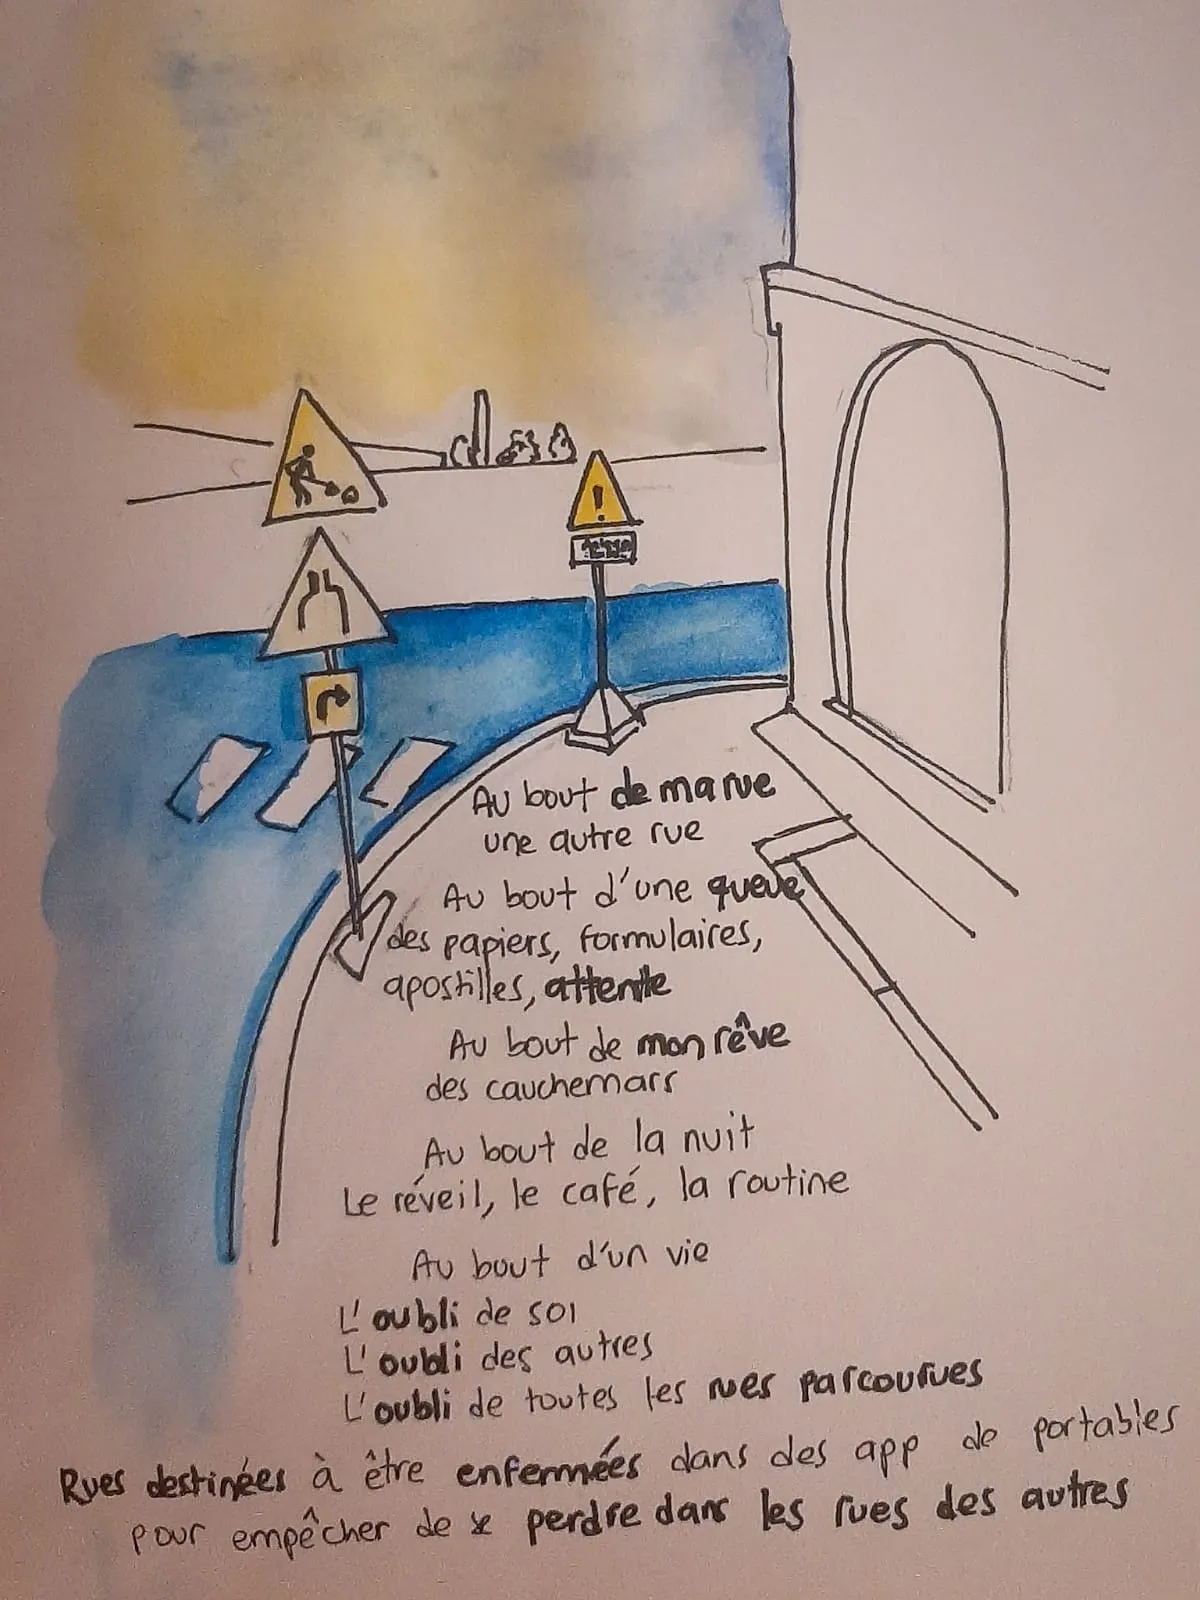 !
Au bout de ma rue
une autre rue
Au bout d'une queue
des papiers, formulaires,
apostilles, attente
Au bout de mon rêve
des cauchemars
Au bout de la nuit
Le réveil, le café, la routine
Au bout d'un vie
L'oubli de soi
L'oubli des autres
L'oubli de toutes les rues parcourues
Rues destinées à être enfermées dans des app de portables
pour empêcher de se perdre dans les rues des autres